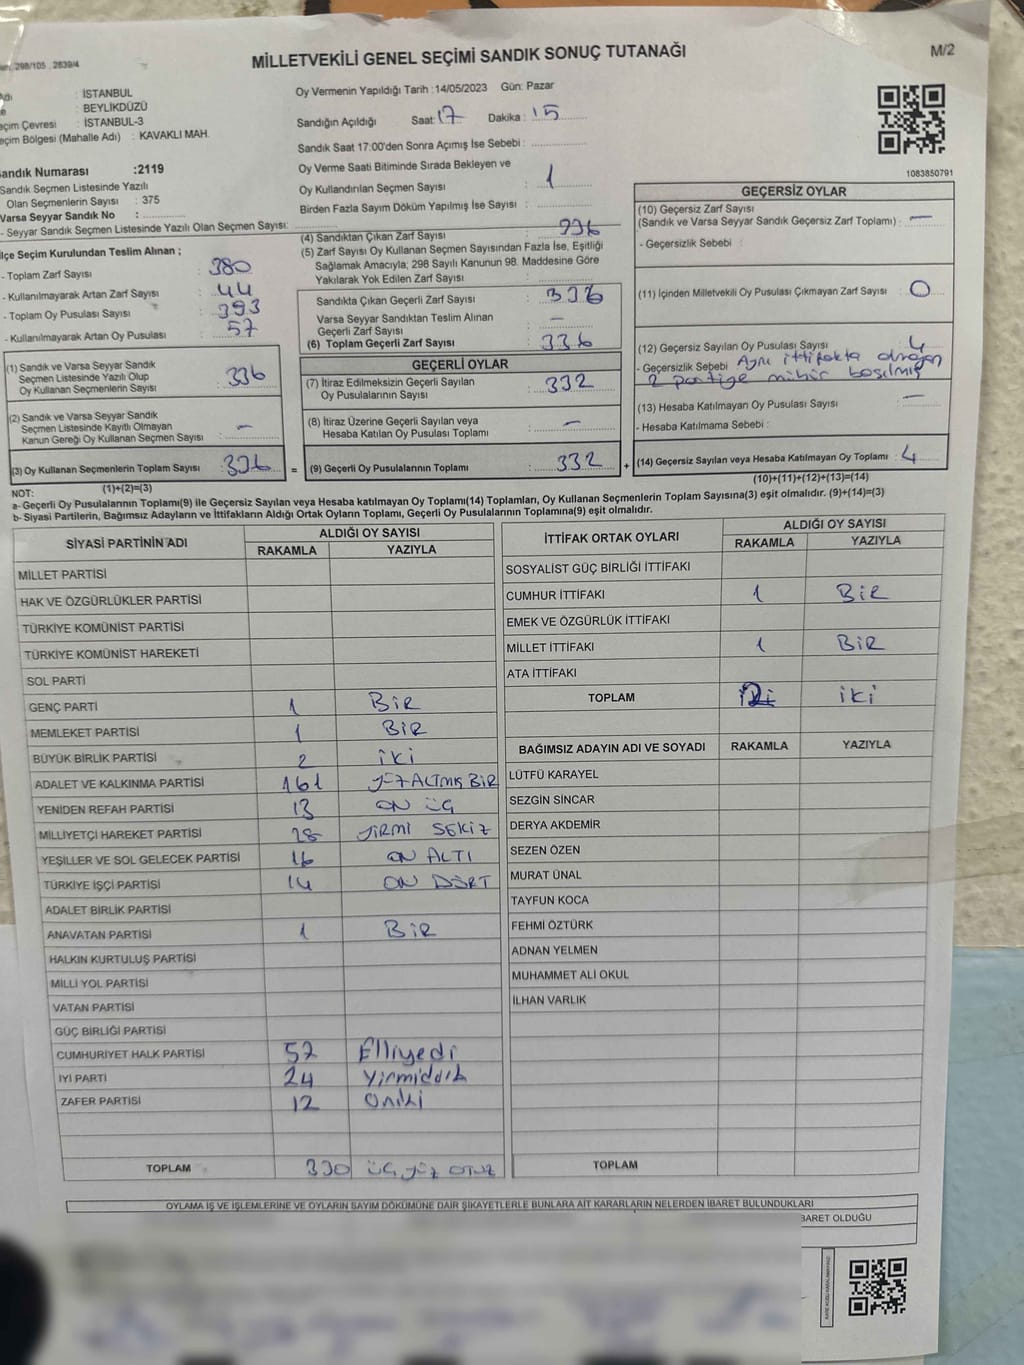 298/105 , 2839/4
MİLLETVEKİLİ GENEL SEÇİMİ SANDIK SONUÇ TUTANAĞI
M/2
: İSTANBUL
: BEYLİKDÜZÜ
: İSTANBUL-3
(Mahalle Adı) : KAVAKLI MAH.
Numarası :2119
Sandık Seçmen Listesinde Yazılı
Olan Seçmenlerin Sayısı : 375
Varsa Seyyar Sandık No :
- Seyyar Sandık Seçmen Listesinde Yazılı Olan Seçmen Sayısı:
Oy Vermenin Yapıldığı Tarih :14/05/2023 Gün: Pazar
Sandığın Açıldığı Saat: 17 Dakika : 15
Sandık Saat 17:00'den Sonra Açımış İse Sebebi :
Oy Verme Saati Bitiminde Sırada Bekleyen ve
Oy Kullandırılan Seçmen Sayısı : 1
Birden Fazla Sayım Döküm Yapılmış İse Sayısı :
1083850791
İlçe Seçim Kurulundan Teslim Alınan ;
- Toplam Zarf Sayısı : 380
- Kullanılmayarak Artan Zarf Sayısı : 44
- Toplam Oy Pusulası Sayısı : 393
- Kullanılmayarak Artan Oy Pusulası : 57
(1) Sandık ve Varsa Seyyar Sandık
Seçmen Listesinde Yazılı Olup
Oy Kullanan Seçmenlerin Sayısı : 336
(2) Sandık ve Varsa Seyyar Sandık
Seçmen Listesinde Kayıtlı Olmayan
Kanun Gereği Oy Kullanan Seçmen Sayısı : -
(3) Oy Kullanan Seçmenlerin Toplam Sayısı : 336
(1)+(2)=(3)
(4) Sandıktan Çıkan Zarf Sayısı : 336
(5) Zarf Sayısı Oy Kullanan Seçmen Sayısından Fazla İse, Eşitliği
Sağlamak Amacıyla; 298 Sayılı Kanunun 98. Maddesine Göre
Yakılarak Yok Edilen Zarf Sayısı :
Sandıkta Çıkan Geçerli Zarf Sayısı : 336
Varsa Seyyar Sandıktan Teslim Alınan
Geçerli Zarf Sayısı : -
(6) Toplam Geçerli Zarf Sayısı : 336
GEÇERLİ OYLAR
(7) İtiraz Edilmeksizin Geçerli Sayılan
Oy Pusulalarının Sayısı : 332
(8) İtiraz Üzerine Geçerli Sayılan veya
Hesaba Katılan Oy Pusulası Toplamı : -
= (9) Geçerli Oy Pusulalarının Toplamı : 332
GEÇERSİZ OYLAR
(10) Geçersiz Zarf Sayısı
(Sandık ve Varsa Seyyar Sandık Geçersiz Zarf Toplamı) : -
- Geçersizlik Sebebi :
(11) İçinden Milletvekili Oy Pusulası Çıkmayan Zarf Sayısı : 0
(12) Geçersiz Sayılan Oy Pusulası Sayısı : 4
- Geçersizlik Sebebi : Aynı ittifakta olmayan
2 partiye mühür basılmış
(13) Hesaba Katılmayan Oy Pusulası Sayısı : -
- Hesaba Katılmama Sebebi :
+ (14) Geçersiz Sayılan veya Hesaba Katılmayan Oy Toplamı : 4
(10)+(11)+(12)+(13)=(14)
NOT:
a- Geçerli Oy Pusulalarının Toplamı(9) ile Geçersiz Sayılan veya Hesaba katılmayan Oy Toplamı(14) Toplamları, Oy Kullanan Seçmenlerin Toplam Sayısına(3) eşit olmalıdır. (9)+(14)=(3)
b- Siyasi Partilerin, Bağımsız Adayların ve İttifakların Aldığı Ortak Oyların Toplamı, Geçerli Oy Pusulalarının Toplamına(9) eşit olmalıdır.
SİYASİ PARTİNİN ADI ALDIĞI OY SAYISI
RAKAMLA YAZIYLA
MİLLET PARTİSİ
HAK VE ÖZGÜRLÜKLER PARTİSİ
TÜRKİYE KOMÜNİST PARTİSİ
TÜRKİYE KOMÜNİST HAREKETİ
SOL PARTİ
GENÇ PARTİ 1 BİR
MEMLEKET PARTİSİ 1 BİR
BÜYÜK BİRLİK PARTİSİ 2 İKİ
ADALET VE KALKINMA PARTİSİ 161 YÜZ ALTMIŞ BİR
YENİDEN REFAH PARTİSİ 13 ON ÜÇ
MİLLİYETÇİ HAREKET PARTİSİ 28 YİRMİ SEKİZ
YEŞİLLER VE SOL GELECEK PARTİSİ 16 ON ALTI
TÜRKİYE İŞÇİ PARTİSİ 14 ON DÖRT
ADALET BİRLİK PARTİSİ
ANAVATAN PARTİSİ 1 BİR
HALKIN KURTULUŞ PARTİSİ
MİLLİ YOL PARTİSİ
VATAN PARTİSİ
GÜÇ BİRLİĞİ PARTİSİ
CUMHURİYET HALK PARTİSİ 57 Elliyedi
İYİ PARTİ 24 Yirmidört
ZAFER PARTİSİ 12 Oniki
TOPLAM 330 ÜÇ YÜZ OTUZ
İTTİFAK ORTAK OYLARI ALDIĞI OY SAYISI
RAKAMLA YAZIYLA
SOSYALİST GÜÇ BİRLİĞİ İTTİFAKI
CUMHUR İTTİFAKI 1 BİR
EMEK VE ÖZGÜRLÜK İTTİFAKI
MİLLET İTTİFAKI 1 BİR
ATA İTTİFAKI
TOPLAM 2 İKİ
BAĞIMSIZ ADAYIN ADI VE SOYADI RAKAMLA YAZIYLA
LÜTFÜ KARAYEL
SEZGİN SİNCAR
DERYA AKDEMİR
SEZEN ÖZEN
MURAT ÜNAL
TAYFUN KOCA
FEHMİ ÖZTÜRK
ADNAN YELMEN
MUHAMMET ALİ OKUL
İLHAN VARLIK
TOPLAM
OYLAMA İŞ VE İŞLEMLERİNE VE OYLARIN SAYIM DÖKÜMÜNE DAİR ŞİKAYETLERLE BUNLARA AİT KARARLARIN NELERDEN İBARET BULUNDUKLARI
BARET OLDUĞU